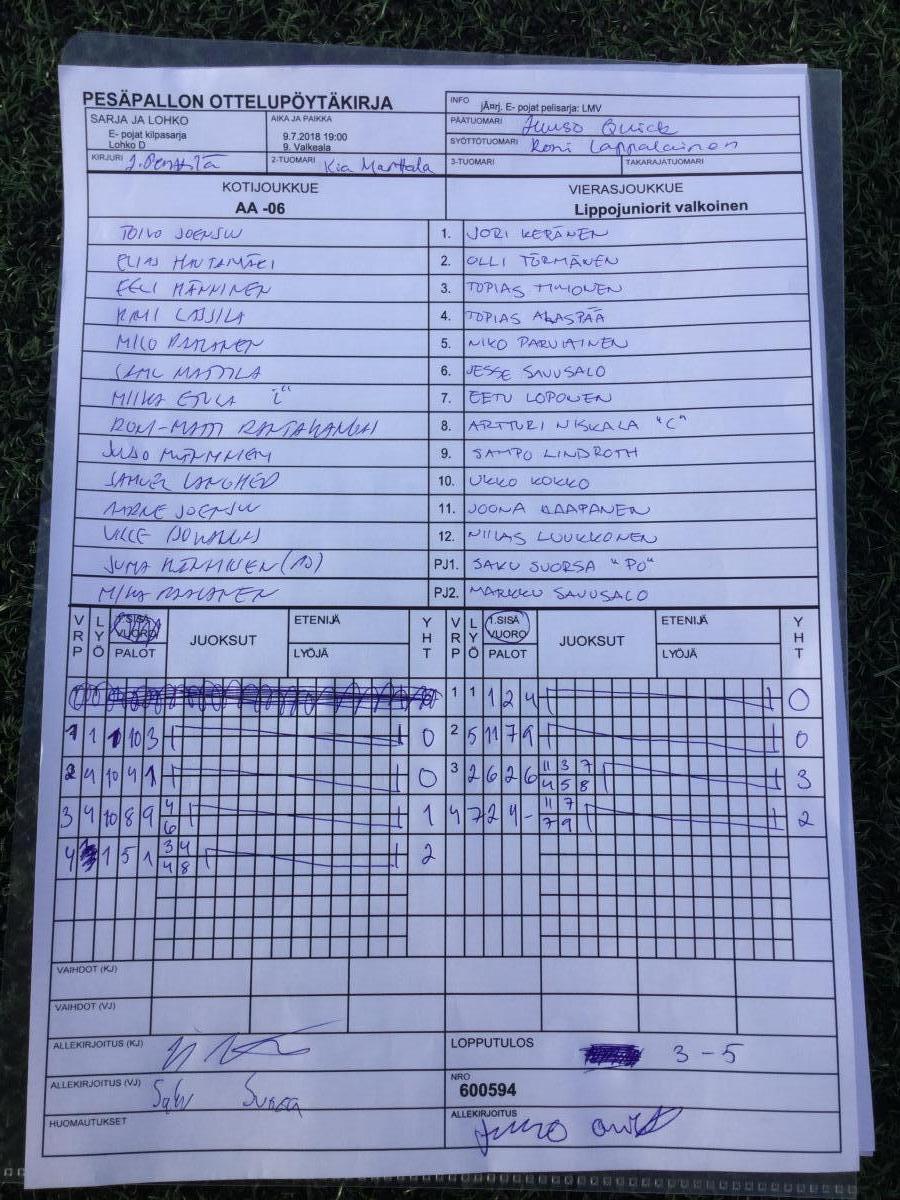 PESÄPALLON OTTELUPÖYTÄKIRJA
INFO jÃ¤rj. E- pojat pelisarja: LMV
SARJA JA LOHKO
E- pojat kilpasarja
Lohko D
AIKA JA PAIKKA
9.7.2018 19:00
9. Valkeala
PÄÄTUOMARI Juuso Quick
SYÖTTÖTUOMARI Roni Lappalainen
KIRJURI
2-TUOMARI Kia Marttala
3-TUOMARI
TAKARAJATUOMARI
KOTIJOUKKUE
AA -06
VIERASJOUKKUE
Lippojuniorit valkoinen
TOIVO JOENSUU 1. JORI KERÄNEN
ELIAS HAUTAMÄKI 2. OLLI TÖRMÄNEN
EELI MÄNNINEN 3. TOPIAS TIMONEN
KIMI LASSILA 4. TOPIAS ALASPÄÄ
MILO PAANANEN 5. NIKO PARVIAINEN
SAMU MATTILA 6. JESSE SAVUSALO
MIIKA 7. EETU LOPONEN
RONI-MATTI RANTAKANGAS 8. ARTTURI NISKALA "C"
JUSO 9. SAMPO LINDROTH
SAMUEL LANGHED 10. UKKO KOKKO
AARNE JOENSUU 11. JOONA KAAPANEN
VILLE 12. NIILAS LUUKKONEN
JUHA PJ1. SAKU SUORSA "PO"
MIKA PAANANEN PJ2. MARKKU SAVUSALO
VRP LYÖ 1.SISÄ VUORO PALOT JUOKSUT ETENIJÄ LYÖJÄ YHT VRP LYÖ 1.SISÄ VUORO PALOT JUOKSUT ETENIJÄ LYÖJÄ YHT
1 1 1 2 4 0
1 1 1 10 3 0 2 5 11 7 9 0
2 4 10 4 1 0 3 2 6 2 6 11 3 7 3
4 5 8
3 4 10 8 9 4 1 4 7 2 4 - 11 7 2
6 7 9
4 1 5 1 3 4 2
4 8
VAIHDOT (KJ)
VAIHDOT (VJ)
ALLEKIRJOITUS (KJ)
LOPPUTULOS 3 - 5
ALLEKIRJOITUS (VJ) Saku Suorsa
NRO
600594
HUOMAUTUKSET
ALLEKIRJOITUS Juuso Quick